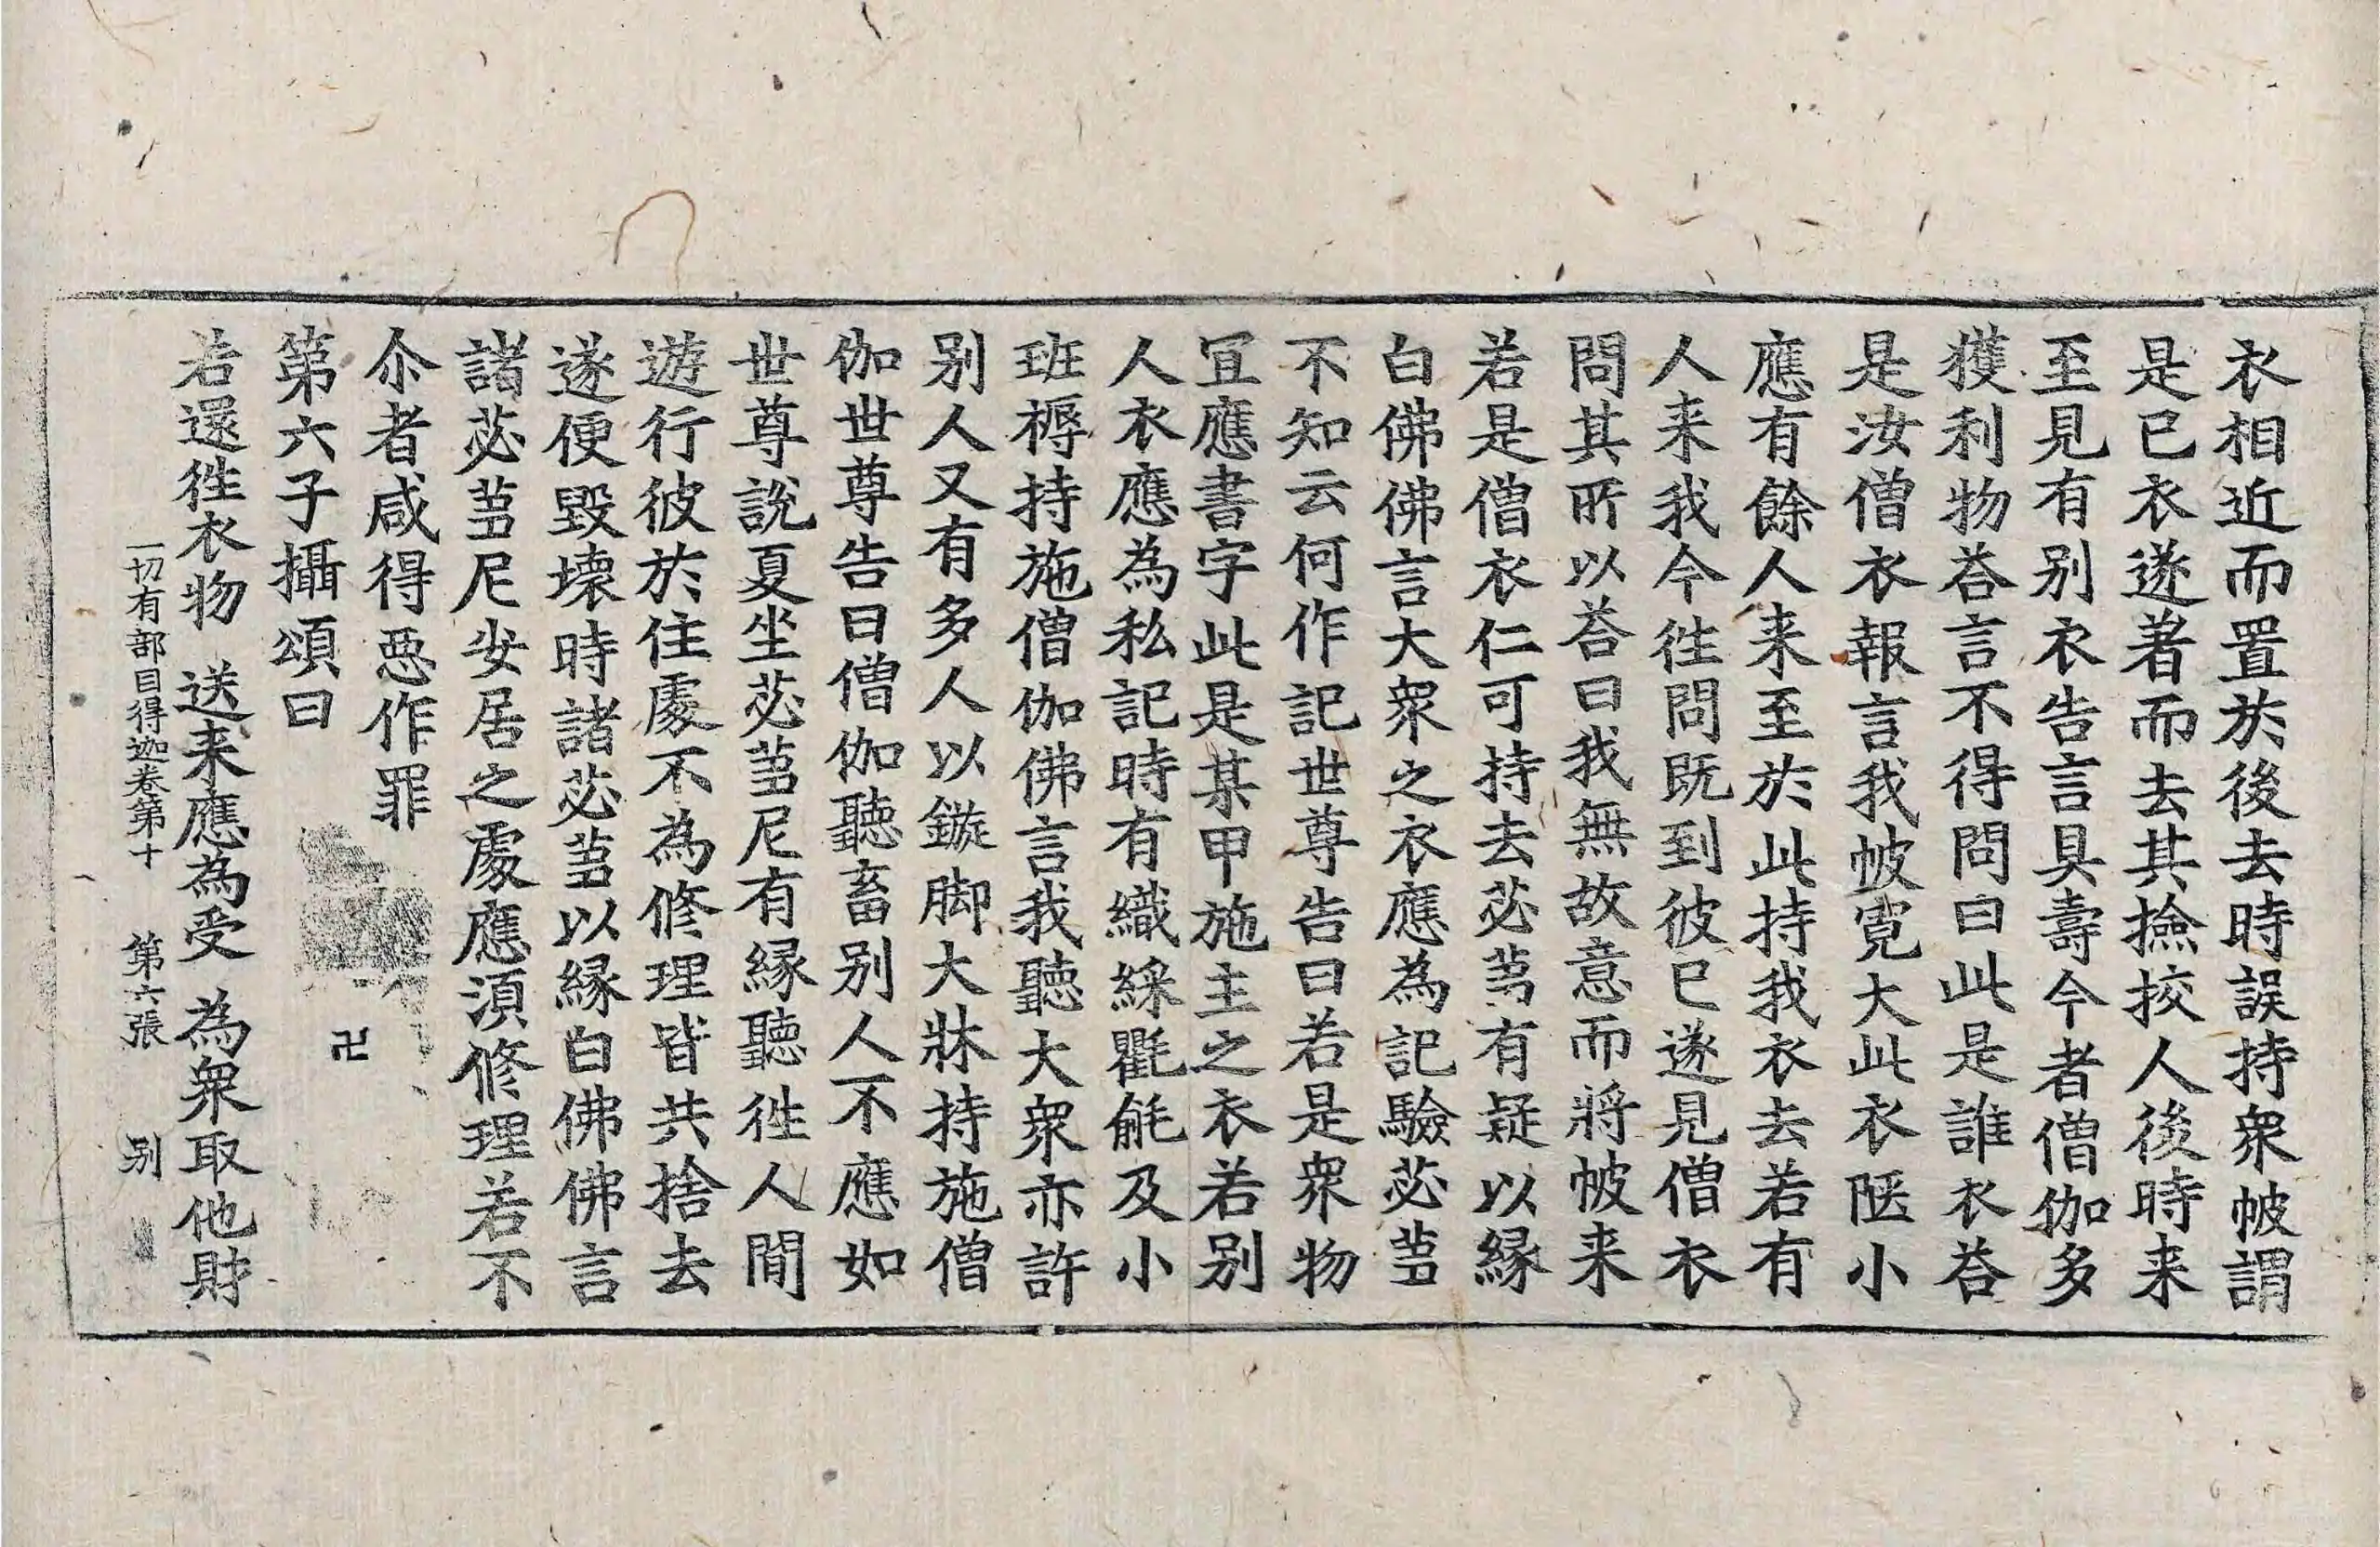 衣相近而置於後去時誤持衆帔謂
是已衣遂著而去其撿挍人後時来
至見有别衣告言具壽今者僧伽多
獲利物荅言不得問曰此是誰衣荅
是汝僧衣報言我帔寛大此衣陿小
應有餘人来至於此持我衣去若有
人来我今徃問既到彼已遂見僧衣
問其所以荅曰我無故意而將帔来
若是僧衣仁可持去苾芻有疑以縁
白佛佛言大衆之衣應為記驗苾芻
不知云何作記世尊告曰若是衆物
冝應書字此是某甲施主之衣若别
人衣應為私記時有織綵氍毹及小
班褥持施僧伽佛言我聽大衆亦許
别人又有多人以鏇脚大牀持施僧
伽世尊告曰僧伽聽畜别人不應如
世尊説夏坐苾芻尼有縁聽徃人間
遊行彼於住處不為修理皆共捨去
遂便毀壊時諸苾芻以縁白佛佛言
諸苾芻尼安居之處應須修理若不
尒者咸得惡作罪
第六子攝頌曰 卍
若還徃衣物 送来應為受 為衆取他財
一切有部目得迦卷第十 第六張 别